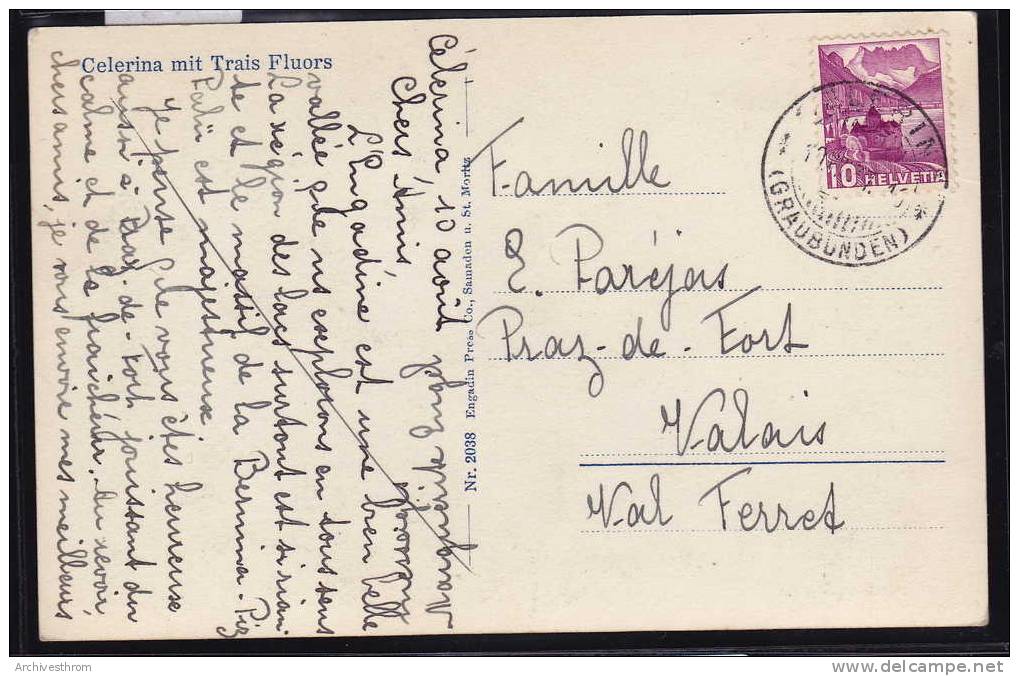 Celerina mit Trais Fluors
Célerina 10 août
Chers Amis,
L'Engadine est une bien belle
vallée que ns explorons en tous sens
La région des lacs surtout est si rian
te et le massif de la Bernina. Piz
Palü est majestueux
Je pense que vous êtes heureuse
aussi à Praz-de-Fort jouissant du
calme et de la fraîcheur. Au revoir,
chers amis, je vous envoie mes meilleurs
Nr. 2038 Engadin Press Co., Samaden u. St. Moritz
Famille
E. Paréjas
Praz-de-Fort
Valais
Val Ferret
10 HELVETIA
(GRAUBÜNDEN)
Archivesthrom
delcampe.net